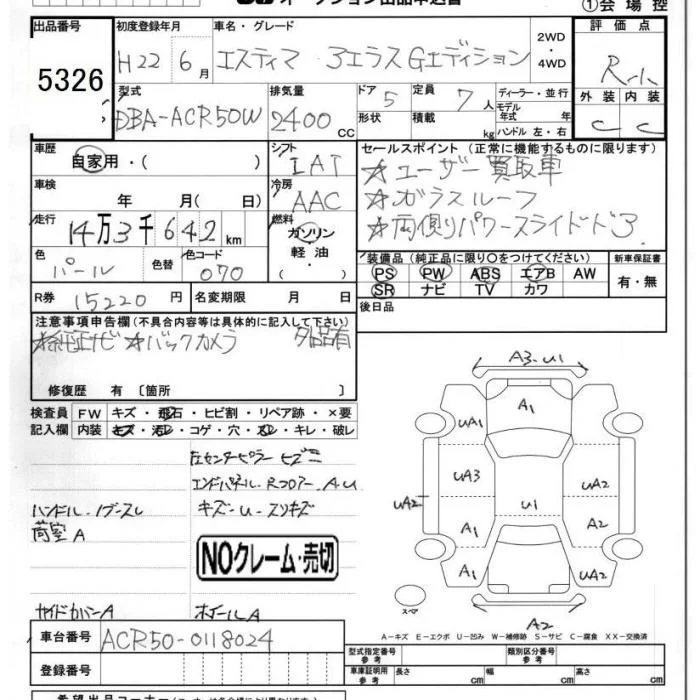 オークション出品申込書
①会場控
出品番号 初度登録年月 車名・グレード 評価点
5326 H22年 6月 エスティマ 3エラスGエディション 2WD・4WD R-1
型式 排気量 ドア 定員 ディーラー・並行 外装 内装
DBA-ACR50W 2400 CC 5 7人 モデル年式 年 C C
形状 積載 kg ハンドル 左・右
車歴 シフト セールスポイント(正常に機能するものに限ります)
自家用・( ) IAT ☆ユーザー買取車
車検 冷房 ☆ガラスルーフ
年 月( 日) AAC ☆両側りパワースライドド3
走行 14万3千642km 燃料 ガソリン 軽油・( )
色 色替 色コード 装備品(純正品に限り○をつけてください) 新車保証書
パール 070 PS PW ABS エアB AW 有・無
SR ナビ TV カワ
R券 15220円 名変期限 月 日 後日品
注意事項申告欄(不具合内容等は具体的に記入して下さい)
☆純正ナビ ☆バックカメラ 外品有
修復歴 有 〔箇所 〕
検査員 FW キズ・飛石・ヒビ割・リペア跡・×要
記入欄 内装 キズ・汚レ・コゲ・穴・スレ・キレ・破レ
左センターピラー ヒズミ
エンドパネル・Rフロアー A.U
ハンドル・ノブスレ キズ・U・スリキズ
荷室 A
NOクレーム・売切
サイドカバーA ホイールA
A3・U1
A1
UA1
UA3 UA2
UA2 U1
A1 A2
A1 UA2
スペア
A2
A−キズ E−エクボ U−凹み W−補修跡 S−サビ C−腐食 XX−交換済
車台番号 ACR50-0118024
型式指定番号 参考 類別区分番号 参考
登録番号 車庫証明用 参考 長さ cm 幅 cm 高さ cm
希望出品コーナー